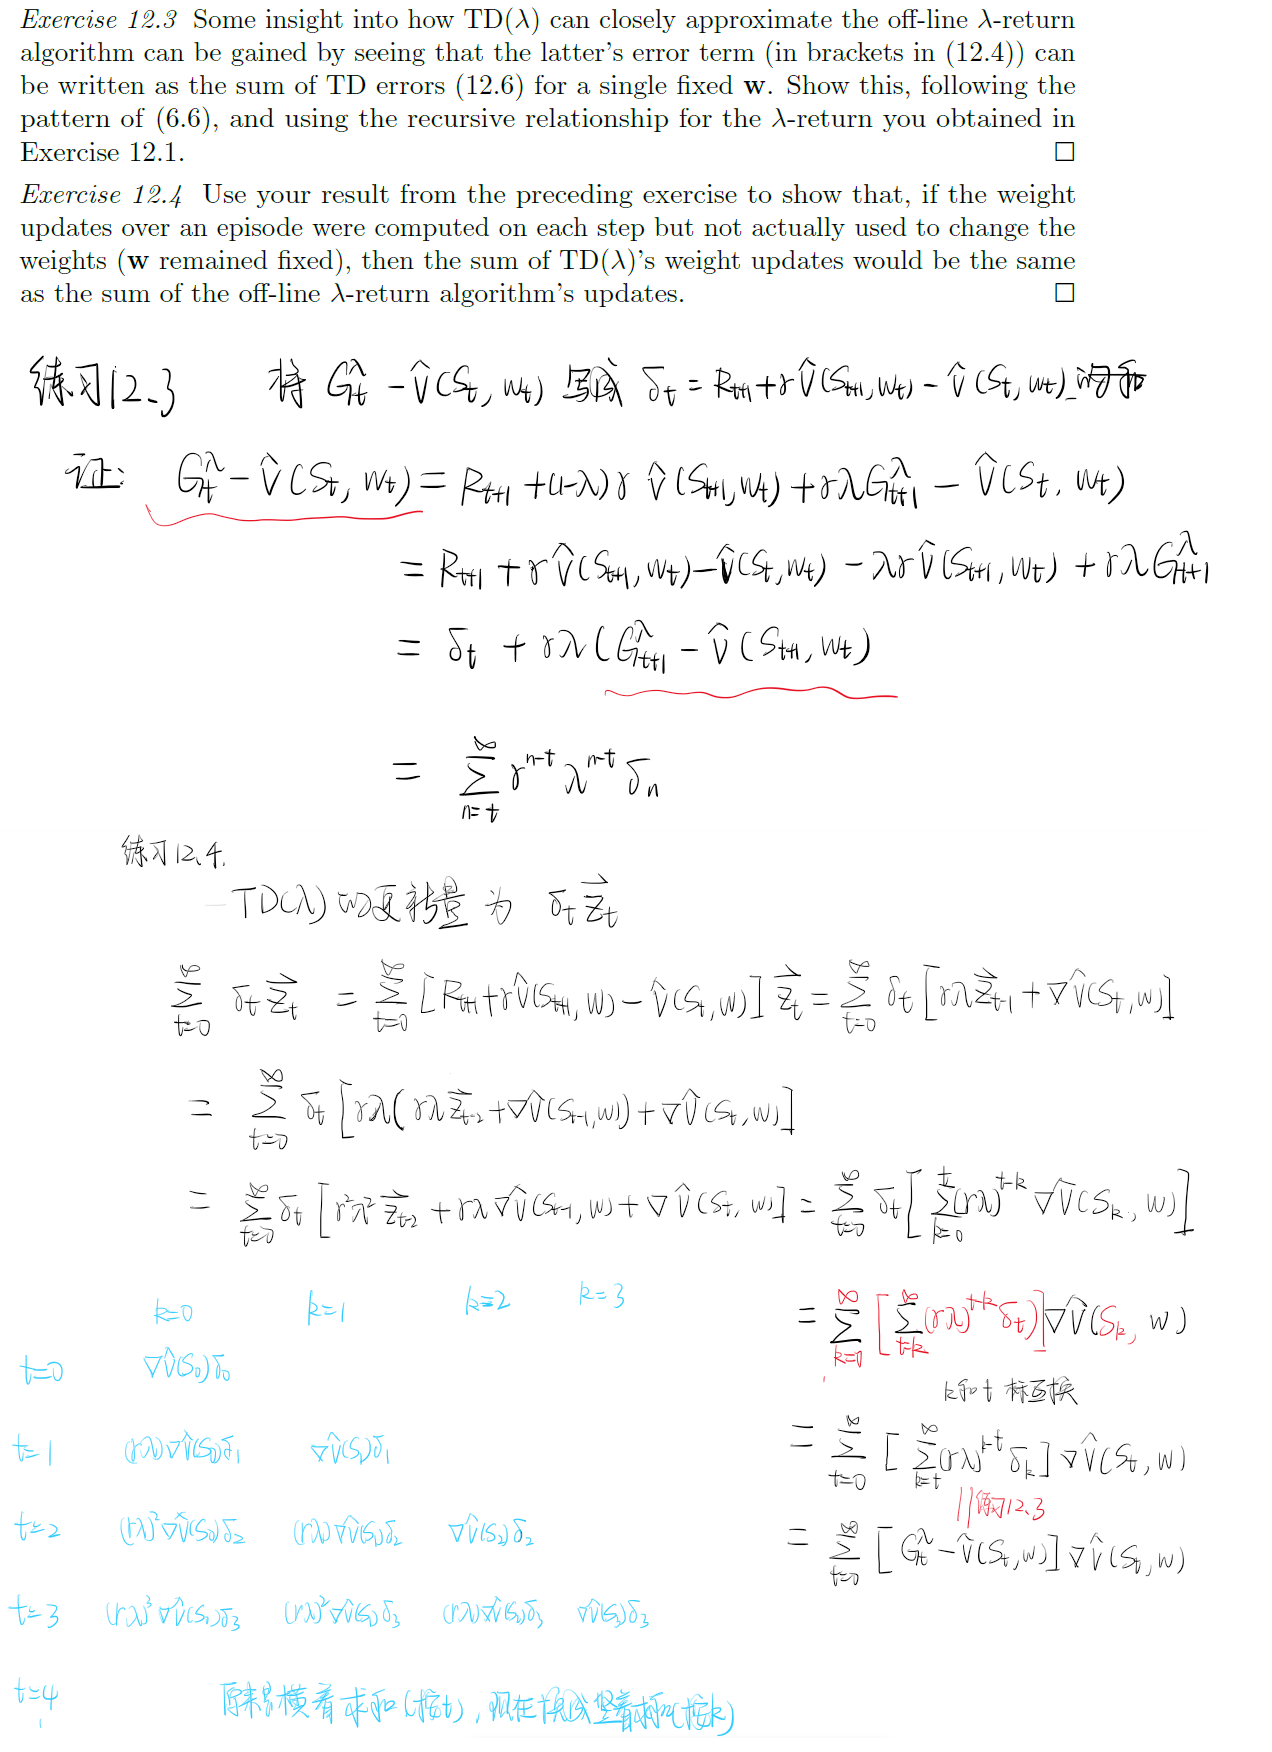 Exercise 12.3 Some insight into how TD(λ) can closely approximate the off-line λ-return
algorithm can be gained by seeing that the latter's error term (in brackets in (12.4)) can
be written as the sum of TD errors (12.6) for a single fixed w. Show this, following the
pattern of (6.6), and using the recursive relationship for the λ-return you obtained in
Exercise 12.1. □
Exercise 12.4 Use your result from the preceding exercise to show that, if the weight
updates over an episode were computed on each step but not actually used to change the
weights (w remained fixed), then the sum of TD(λ)'s weight updates would be the same
as the sum of the off-line λ-return algorithm's updates. □
练习12.3 将 G_t^λ - V̂(S_t, w_t) 写成 δ_t = R_{t+1} + γV̂(S_{t+1}, w_t) - V̂(S_t, w_t) 的和
证: G_t^λ - V̂(S_t, w_t) = R_{t+1} + (1-λ)γ V̂(S_{t+1}, w_t) + γλG_{t+1}^λ - V̂(S_t, w_t)
= R_{t+1} + γV̂(S_{t+1}, w_t) - V̂(S_t, w_t) - λγV̂(S_{t+1}, w_t) + γλG_{t+1}^λ
= δ_t + γλ(G_{t+1}^λ - V̂(S_{t+1}, w_t)
= Σ_{n=t}^∞ γ^{n-t} λ^{n-t} δ_n
练习12.4.
TD(λ)的更新量为 δ_t z⃗_t
Σ_{t=0}^∞ δ_t z⃗_t = Σ_{t=0}^∞ [R_{t+1} + γV̂(S_{t+1}, w) - V̂(S_t, w)] z⃗_t = Σ_{t=0}^∞ δ_t [γλz⃗_{t-1} + ∇V̂(S_t, w)]
= Σ_{t=0}^∞ δ_t [γλ(γλz⃗_{t-2} + ∇V̂(S_{t-1}, w)) + ∇V̂(S_t, w)]
= Σ_{t=0}^∞ δ_t [γ²λ² z⃗_{t-2} + γλ∇V̂(S_{t-1}, w) + ∇V̂(S_t, w)] = Σ_{t=0}^∞ δ_t [Σ_{k=0}^t (γλ)^{t-k} ∇V̂(S_k, w)]
= Σ_{k=0}^∞ [Σ_{t=k}^∞ (γλ)^{t-k} δ_t)] ∇V̂(S_k, w)
k和t 标互换
= Σ_{t=0}^∞ [Σ_{k=t}^∞ (γλ)^{k-t} δ_k] ∇V̂(S_t, w)
|| 练习12.3
= Σ_{t=0}^∞ [G_t^λ - V̂(S_t, w)] ∇V̂(S_t, w)
k=0 k=1 k=2 k=3
t=0 ∇V̂(S_0)δ_0
t=1 (γλ)∇V̂(S_0)δ_1 ∇V̂(S_1)δ_1
t=2 (γλ)²∇V̂(S_0)δ_2 (γλ)∇V̂(S_1)δ_2 ∇V̂(S_2)δ_2
t=3 (γλ)³∇V̂(S_0)δ_3 (γλ)²∇V̂(S_1)δ_3 (γλ)∇V̂(S_2)δ_3 ∇V̂(S_3)δ_3
t=4 原来是横着求和(按t), 现在换成竖着求和(按k)